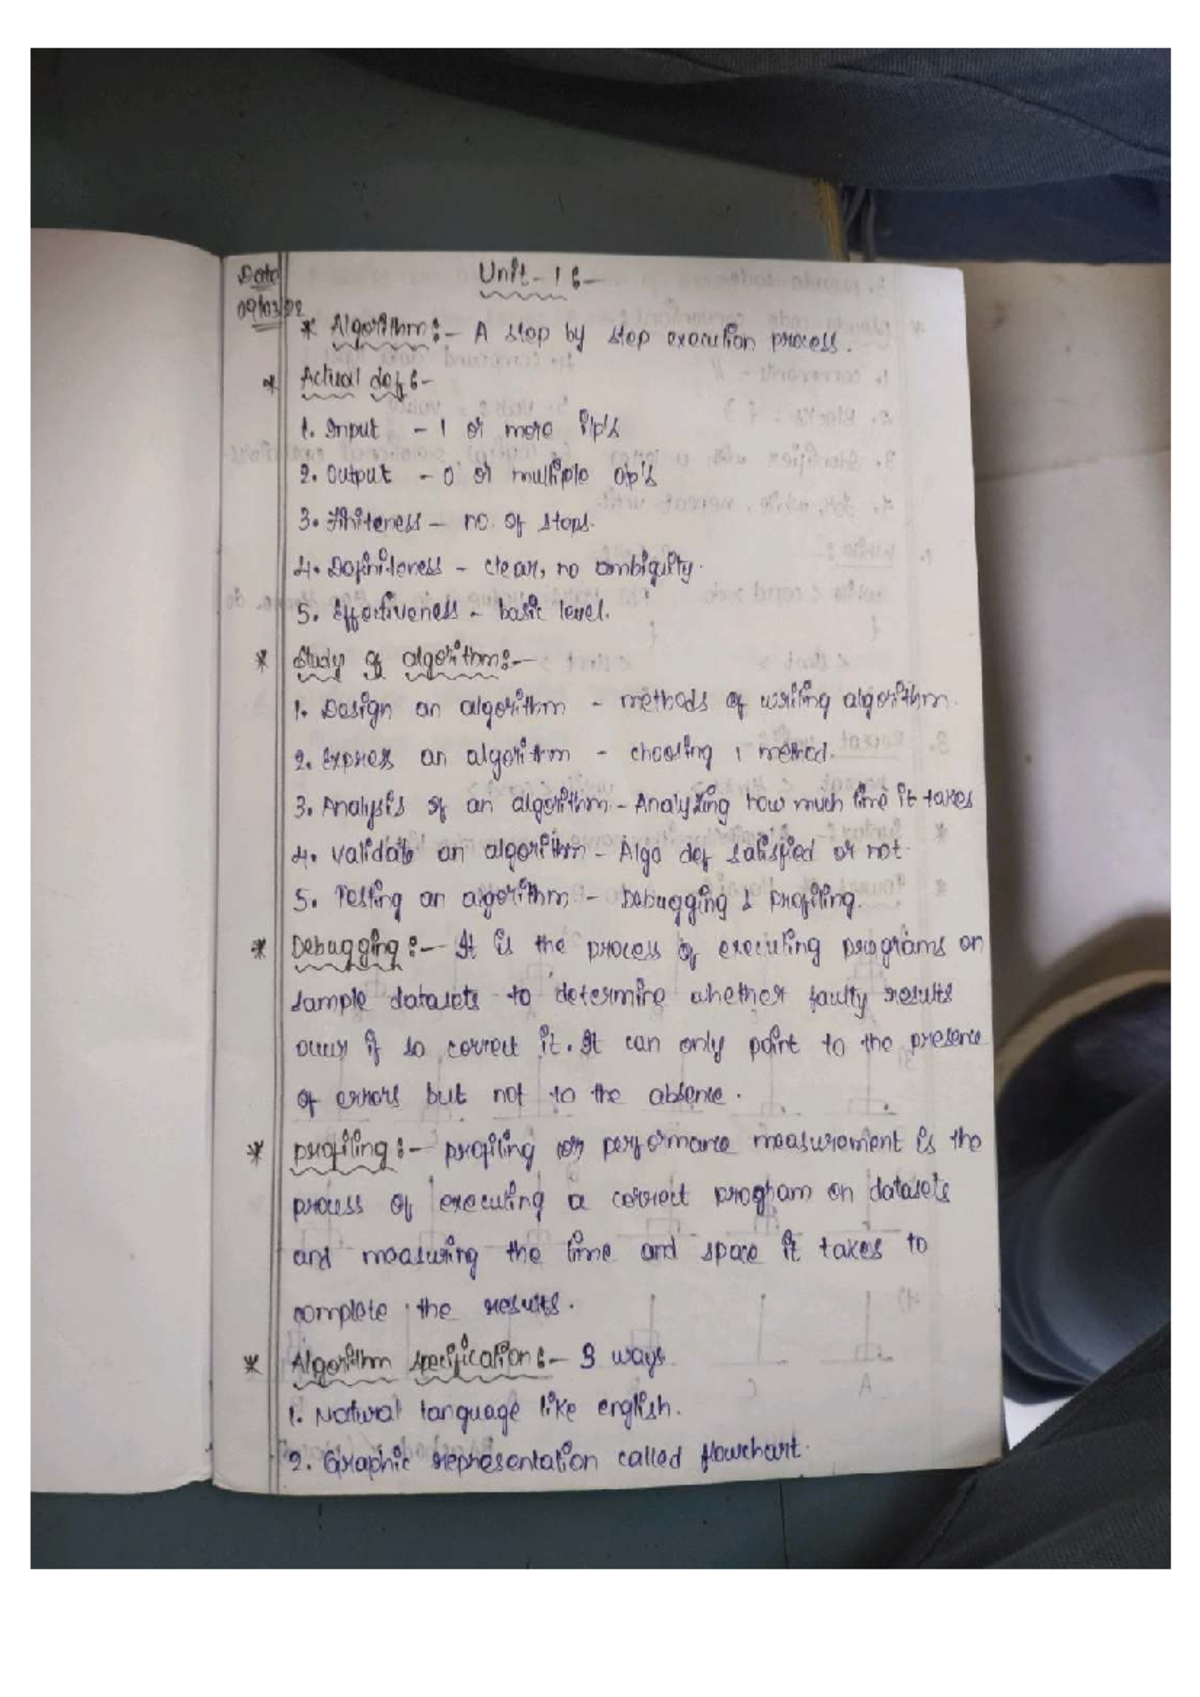 Date
09/03/22
Unit-1 :-
* Algorithm :- A step by step execution process.
* Actual def :-
1. Input - 1 or more i/p's
2. Output - 0 or multiple o/p's
3. Finiteness - no. of steps.
4. Definiteness - clear, no ambiguity.
5. Effectiveness - basic level.
* Study of algorithm :-
1. Design an algorithm - methods of writing algorithm.
2. Express an algorithm - choosing 1 method.
3. Analysis of an algorithm - Analyzing how much time it takes
4. Validate an algorithm - Algo def satisfied or not.
5. Testing an algorithm - Debugging & profiling.
* Debugging :- It is the process of executing programs on
sample datasets to determire whether faulty results
occur if so correct it. It can only point to the presence
of errors but not to the absence.
* profiling :- profiling (or) performance measurement is the
process of executing a correct program on datasets
and measuring the time and space it takes to
complete the results.
* Algorithm specification :- 3 ways
1. Natural language like english.
2. Graphic representation called flowchart.